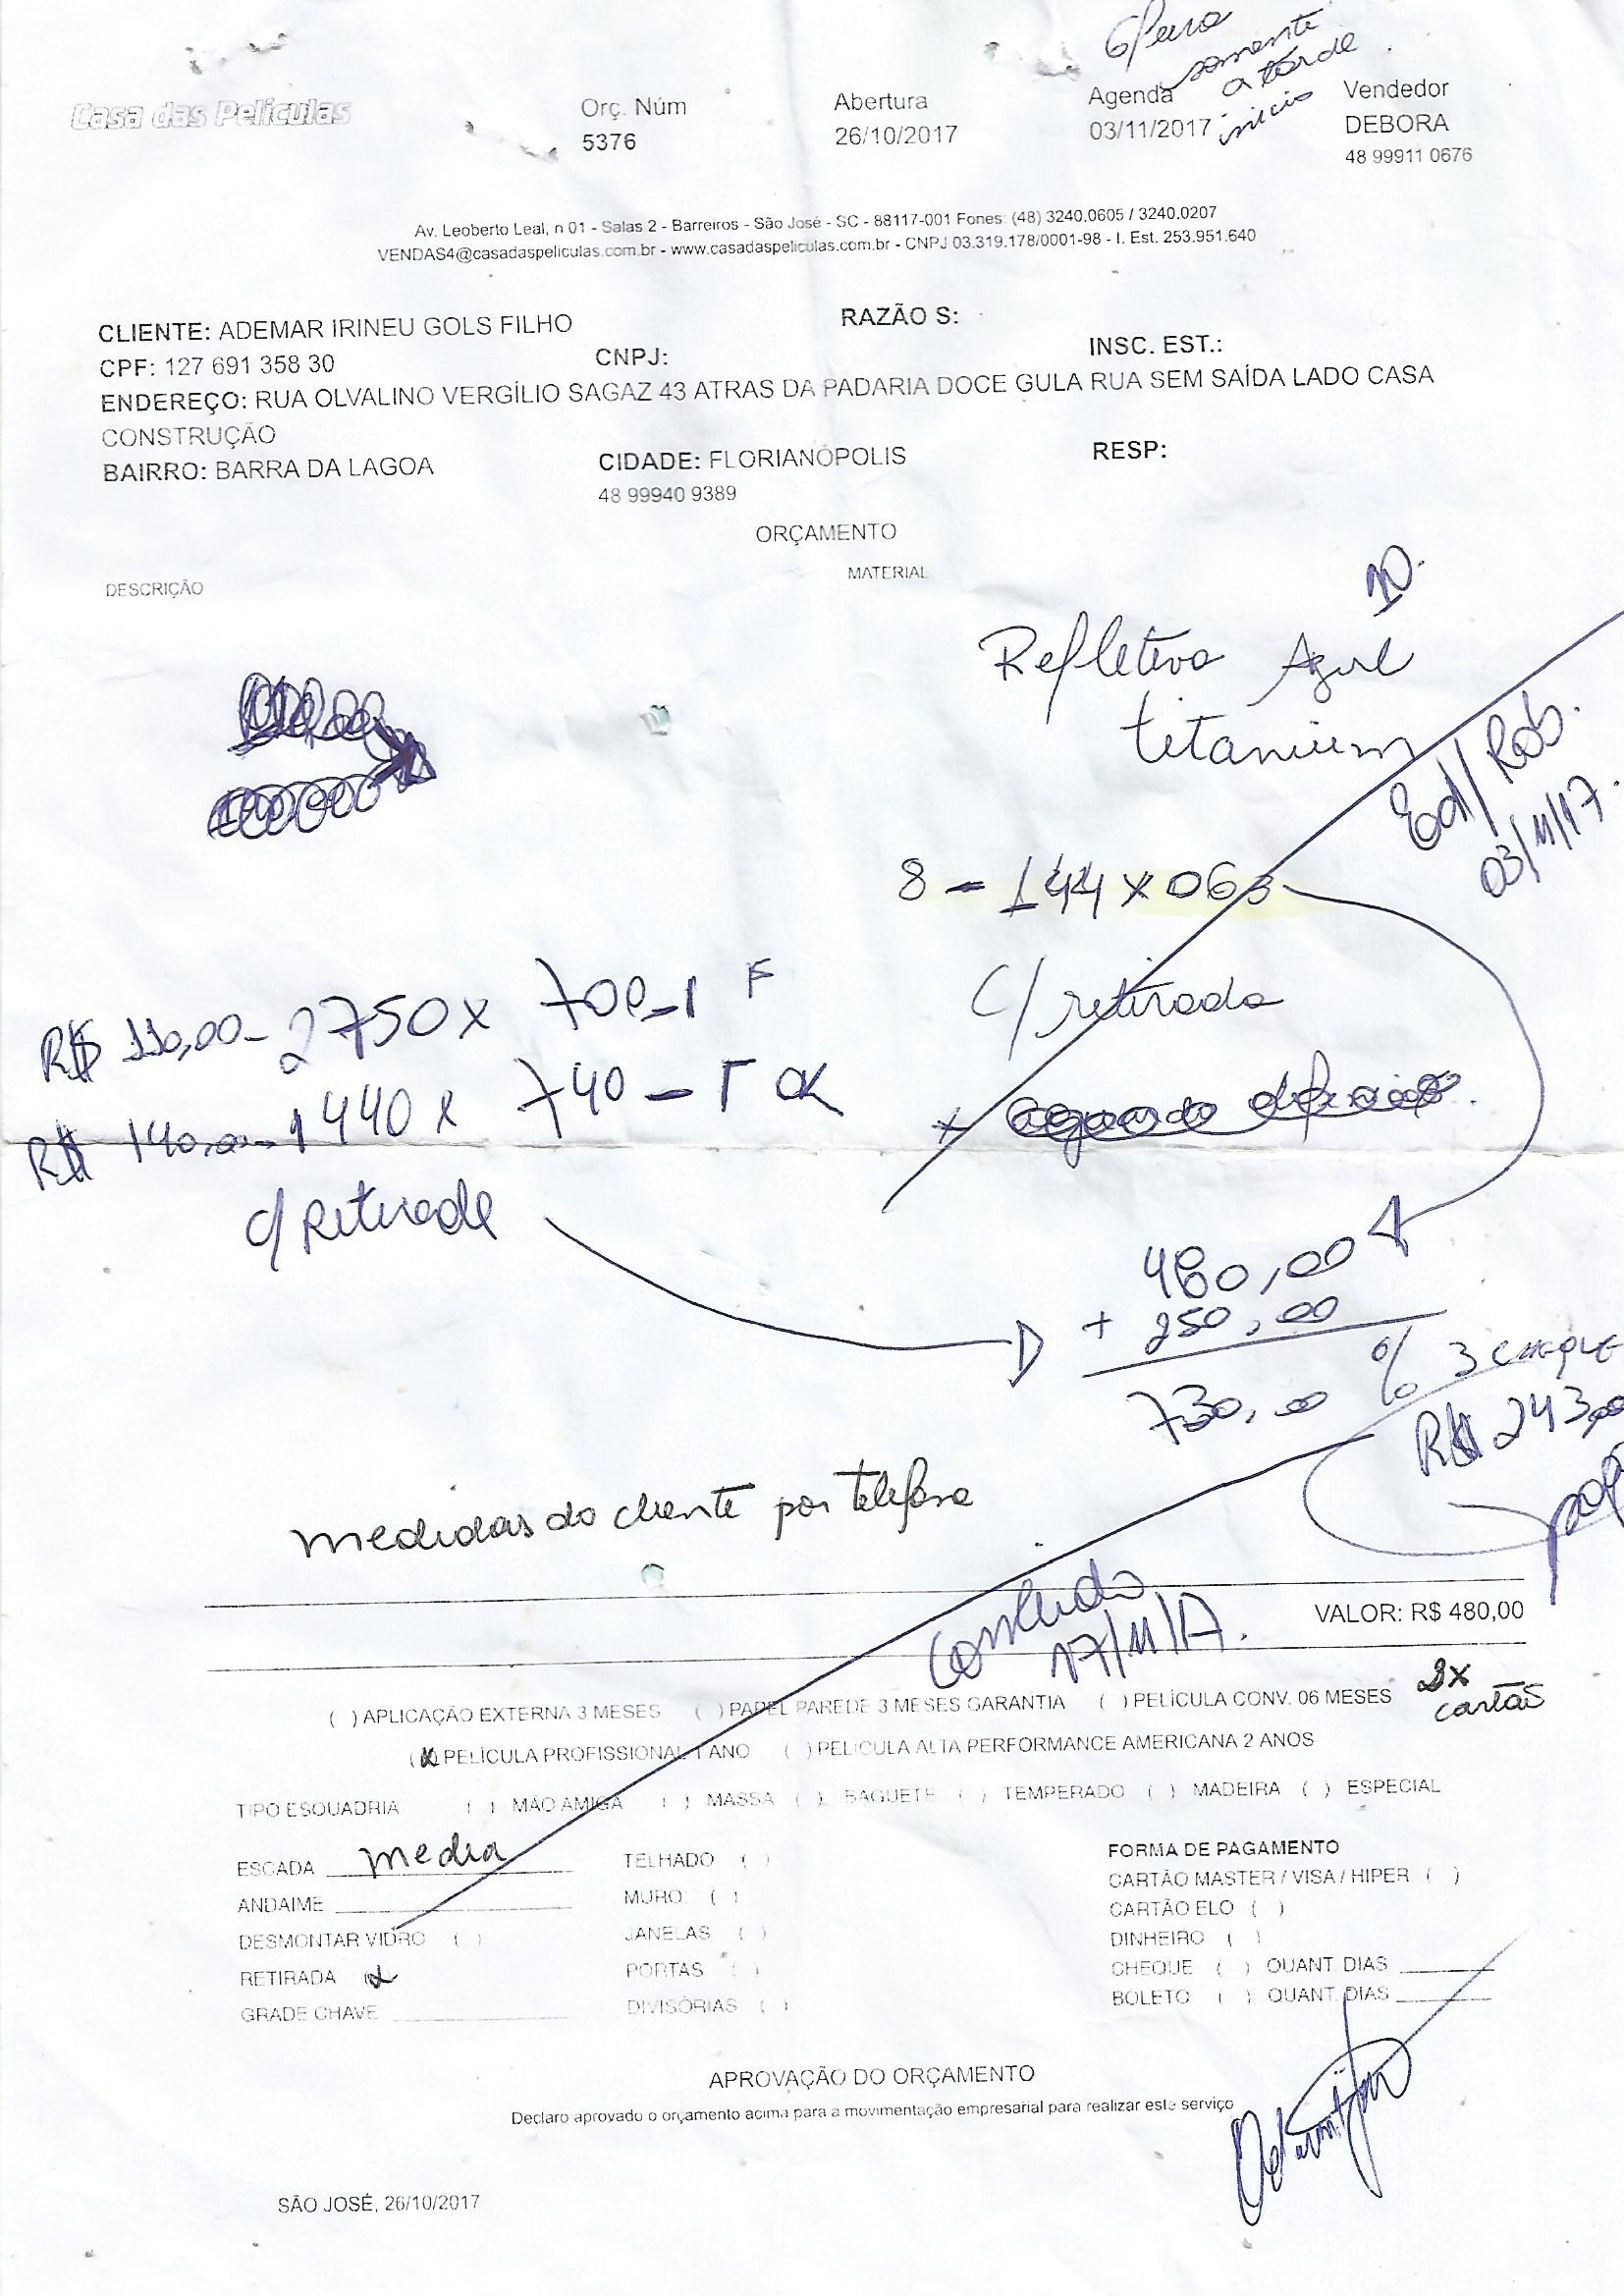 somente
a tarde
início
Casa das Películas
Orç. Núm
5376
Abertura
26/10/2017
Agenda
03/11/2017
Vendedor
DEBORA
48 99911 0676
Av. Leoberto Leal, n 01 - Salas 2 - Barreiros - São José - SC - 88117-001 Fones: (48) 3240.0605 / 3240.0207
VENDAS4@casadaspeliculas.com.br - www.casadaspeliculas.com.br - CNPJ 03.319.178/0001-98 - I. Est. 253.951.640
CLIENTE: ADEMAR IRINEU GOLS FILHO
RAZÃO S:
CPF: 127 691 358 30
CNPJ:
INSC. EST.:
ENDEREÇO: RUA OLVALINO VERGÍLIO SAGAZ 43 ATRAS DA PADARIA DOCE GULA RUA SEM SAÍDA LADO CASA
CONSTRUÇÃO
BAIRRO: BARRA DA LAGOA
CIDADE: FLORIANÓPOLIS
RESP:
48 99940 9389
ORÇAMENTO
DESCRIÇÃO
MATERIAL
10.
Refletivo Azul
titanium
Ed/Rob.
03/11/17.
8 - 144 x 063
C/ retirada
R$ 110,00 - 2750 x 700 - 1 F
R$ 140,00 - 1440 x 740 - 1 OK
c/ Retirada
480,00
+ 250,00
730,00 % 3 CHEQUE
R$ 243,00
medidas do cliente por telefone
VALOR: R$ 480,00
Concluido
17/11/17.
( ) APLICAÇÃO EXTERNA 3 MESES ( ) PAPEL PAREDE 3 MESES GARANTIA ( ) PELÍCULA CONV. 06 MESES
cartão
(X) PELÍCULA PROFISSIONAL 1 ANO ( ) PELICULA ALTA PERFORMANCE AMERICANA 2 ANOS
TIPO ESQUADRIA ( ) MÃO AMIGA ( ) MASSA ( ) BAGUETE ( ) TEMPERADO ( ) MADEIRA ( ) ESPECIAL
ESCADA media
TELHADO ( )
FORMA DE PAGAMENTO
ANDAIME
MURO ( )
CARTÃO MASTER / VISA / HIPER ( )
DESMONTAR VIDRO ( )
JANELAS ( )
CARTÃO ELO ( )
RETIRADA (X)
PORTAS ( )
DINHEIRO ( )
GRADE CHAVE
DIVISÓRIAS ( )
CHEQUE ( ) QUANT. DIAS
BOLETO ( ) QUANT. DIAS
APROVAÇÃO DO ORÇAMENTO
Declaro aprovado o orçamento acima para a movimentação empresarial para realizar este serviço
SÃO JOSÉ, 26/10/2017